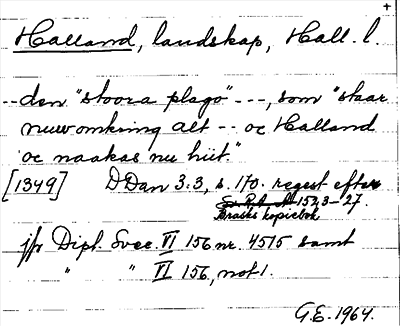 +
Halland, landskap, Hall. l.
--den "stoora plago" ---, som "staar
nuw omkring alt -- oc Halland
oc naakas nu hiit."
[1349] DDan 3:3, s. 170. regest efter
1523-27.
Brasks kopiebok
jfr Dipl. Svec. VI 156 nr. 4515 samt
" " VI 156, not 1.
G.E. 1964.